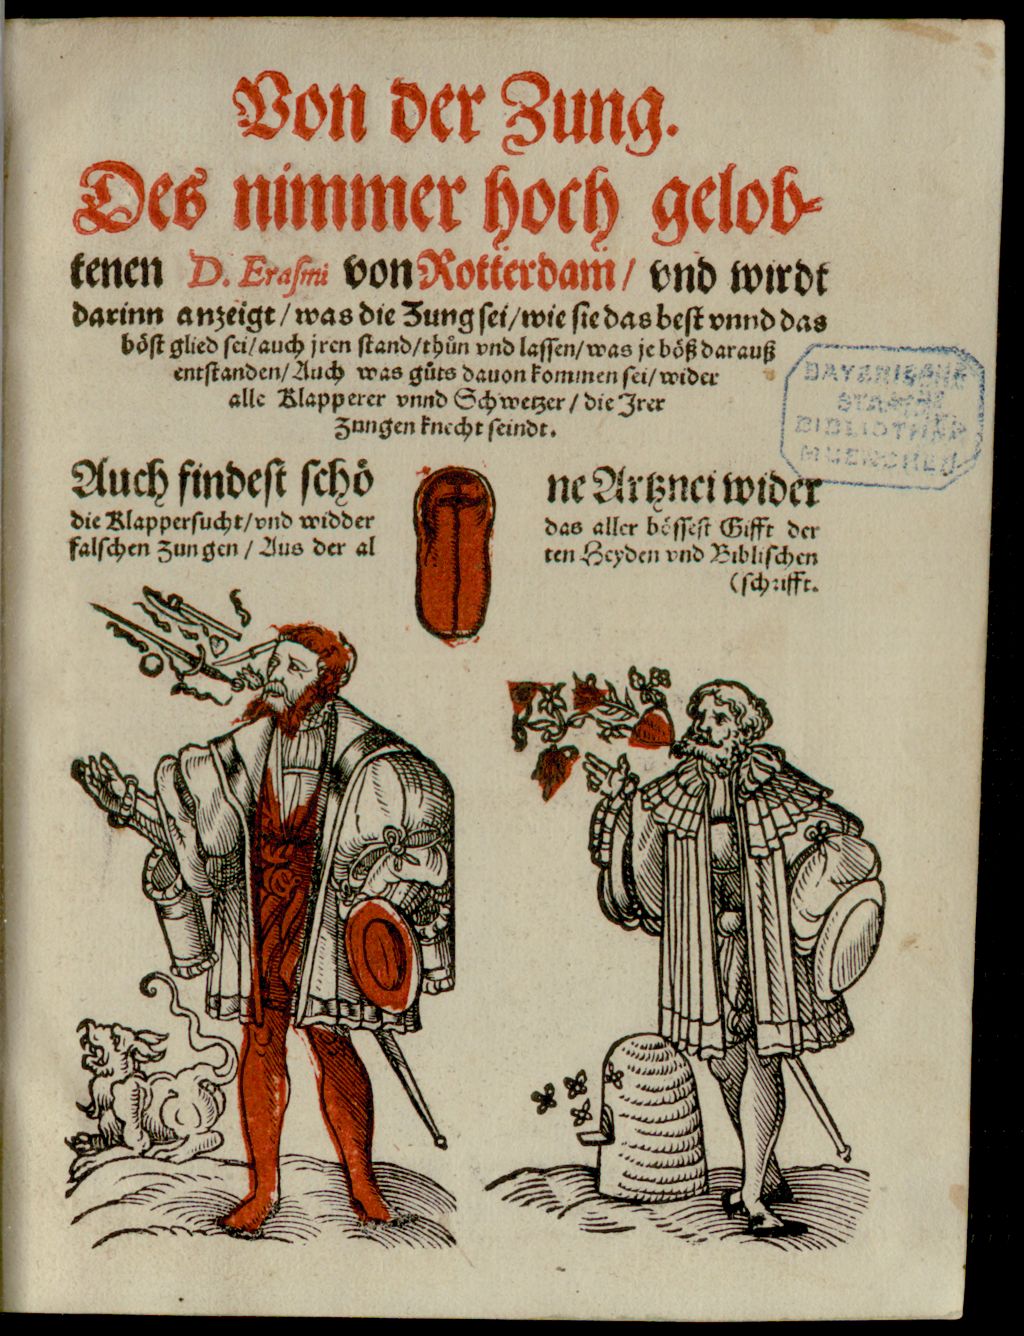 Von der Zung.
Des nimmer hoch gelob-
tenen D. Erasmi von Rotterdam / vnd wirdt
darinn anzeigt / was die Zung sei / wie sie das best vnnd das
böst glied sei / auch jren stand / thůn vnd lassen / was je böß darauß
entstanden / Auch was gůts dauon kommen sei / wider
alle Klapperer vnnd Schwetzer / die Jrer
Zungen knecht seindt.
Auch findest schö
die Klappersucht / vnd widder
falschen Zungen / Aus der al
ne Artznei wider
das aller bössest Gifft der
ten Heyden vnd Biblischen
(schrifft.
BAYERISCHE
STAATS
BIBLIOTHEK
MUENCHEN